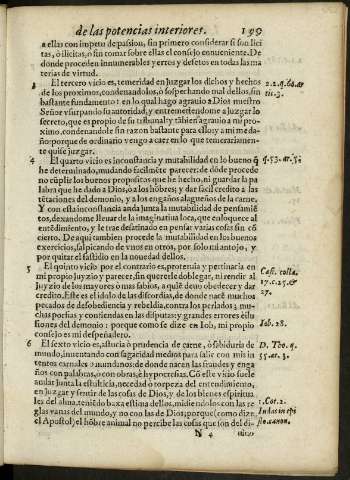 de las potencias interiores. 199
a ellas con impetu de passion, sin primero considerar si son lici
tas, ò ilicitas, ò sin tomar sobre ellas el consejo conueniente. De
donde proceden innumerables yerros y defetos en todas las ma
terias de virtud.
3 El tercero vicio es, temeridad en juzgar los dichos y hechos
de los proximos, condenandolos, ò sospechando mal dellos, sin
bastante fundamento: en lo qual hago agrauio a Dios nuestro
Señor vsurpando su autoridad, y entremetiendome a juzgar lo
secreto, que es propio de su tribunal y tãbien agrauio a mi pro-
ximo, condenandole sin razon bastante para ello: y a mi me da-
ño porque de ordinario vengo a caer en lo que temerariamen-
te quise juzgar.
2.2.q.60.ar
tic.3.
4 El quarto vicio es inconstancia y mutabilidad en lo bueno q̃
he determinado, mudando facilmẽte parecer: de dõde procede
no cũplir los buenos propositos que he hecho, ni guardar la pa
labra que he dado a Dios, ò a los hõbres; y dar facil credito a las
tẽtaciones del demonio, y a los engaños alagueños de la carne.
Y con esta inconstancia anda junta la mutabilidad de pensamiẽ
tos, dexandome lleuar de la imaginatiua loca, que enloquece al
entẽdimiento, y le trae desatinado en pensar varias cosas sin cõ
cierto. De aqui tambien procede la mutabilidad en los buenos
exercicios, salpicando de vnos en otros, por solo mi antojo, y
por quitar el fastidio en la nouedad dellos.
q.53.ar.5.
5 El quinto vicio por el contrario es, proteruia y pertinacia en
mi propio juyzio y parecer, sin quererle doblegar, ni rendir al
juyzio de los mayores ò mas sabios, a quiẽ deuo obedecer y dar
credito. Este es el idolo de las discordias, de donde nacẽ muchos
pecados de desobediencia y rebeldia, contra los perlados; mu-
chas porfias y contiendas en las disputas: y grandes errores è ilu
siones del demonio: porque como se dize en Iob, mi propio
consejo es mi despeñadero.
Cass. colla.
17.c.25.&
27.
Iob. 18.
6 El sexto vicio es, astucia ò prudencia de carne, ò sabiduria de
mundo, inuentando con sagacidad medios para salir con mis in
tentos carnales ò mundanos: de donde nacen las fraudes y enga
ños con palabras, ò con obras, è hypocresias. Cõ este vicio suele
andar junta la estulticia, necedad ò torpeza del entendimiento,
en juzgar y sentir de las cosas de Dios, y de los bienes espiritua
les del alma, teniẽdo baxa estima dellos, midiendolos con las re
glas vanas del mundo, y no con las de Dios; porque (como dize
el Apostol) el hõbre animal no percibe las cosas que son del di-
D. Tho. q.
55.ar.3.
1.Cor.2.
N 4 uino